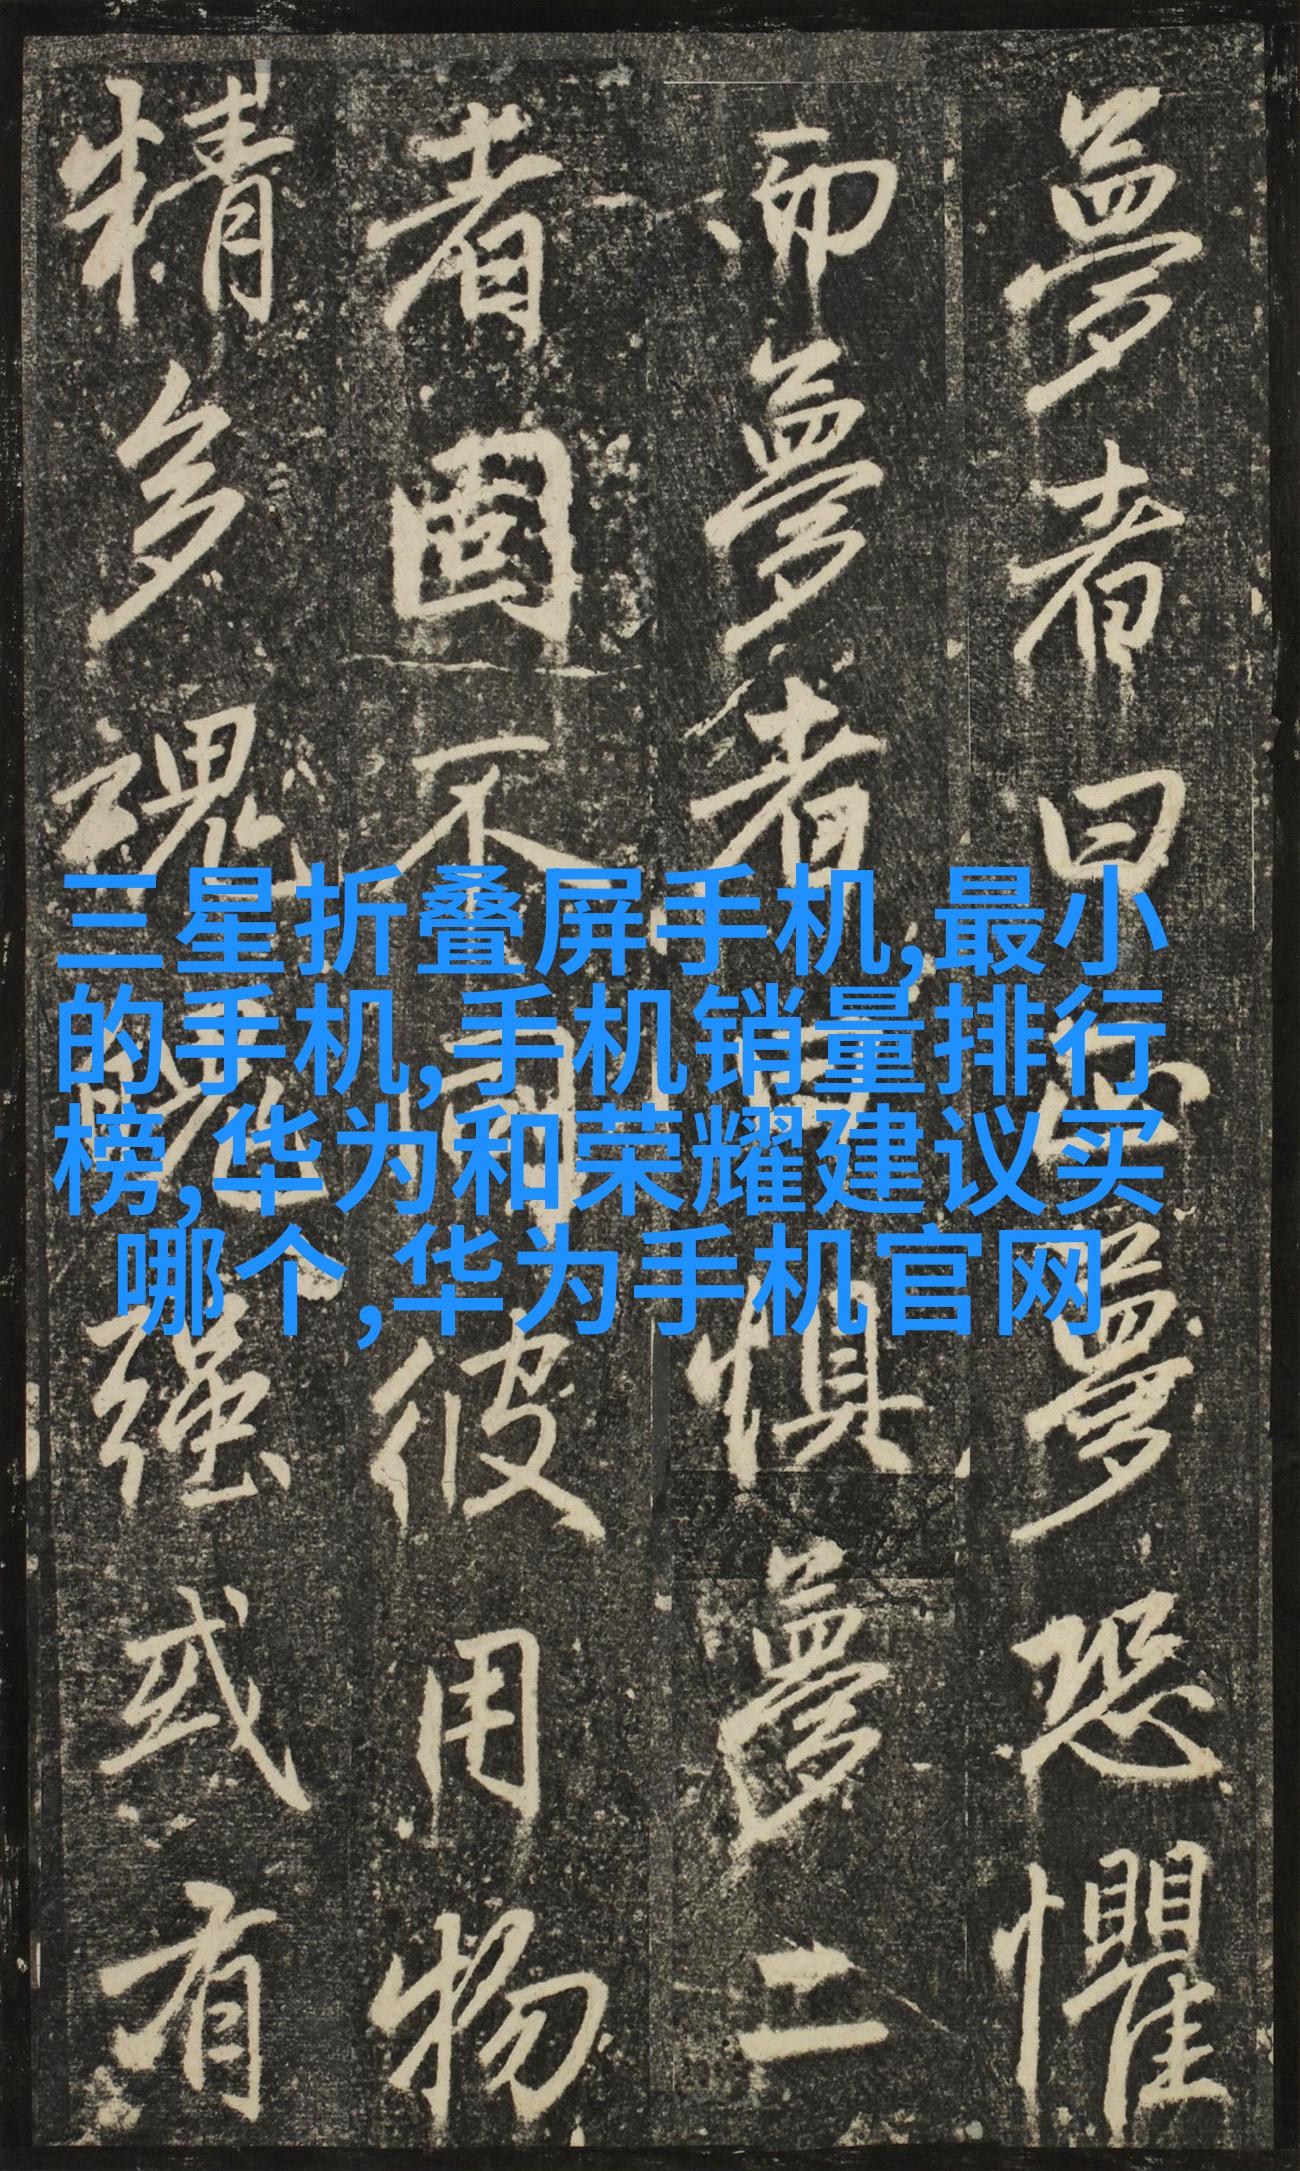 夢者曰夢恐懼
而夢者曰惧夢二
者固不同彼用物
精多魂魄強或有
三星折叠屏手机,最小
的手机,手机销量排行
榜,华为和荣耀建议买
哪个,华为手机官网